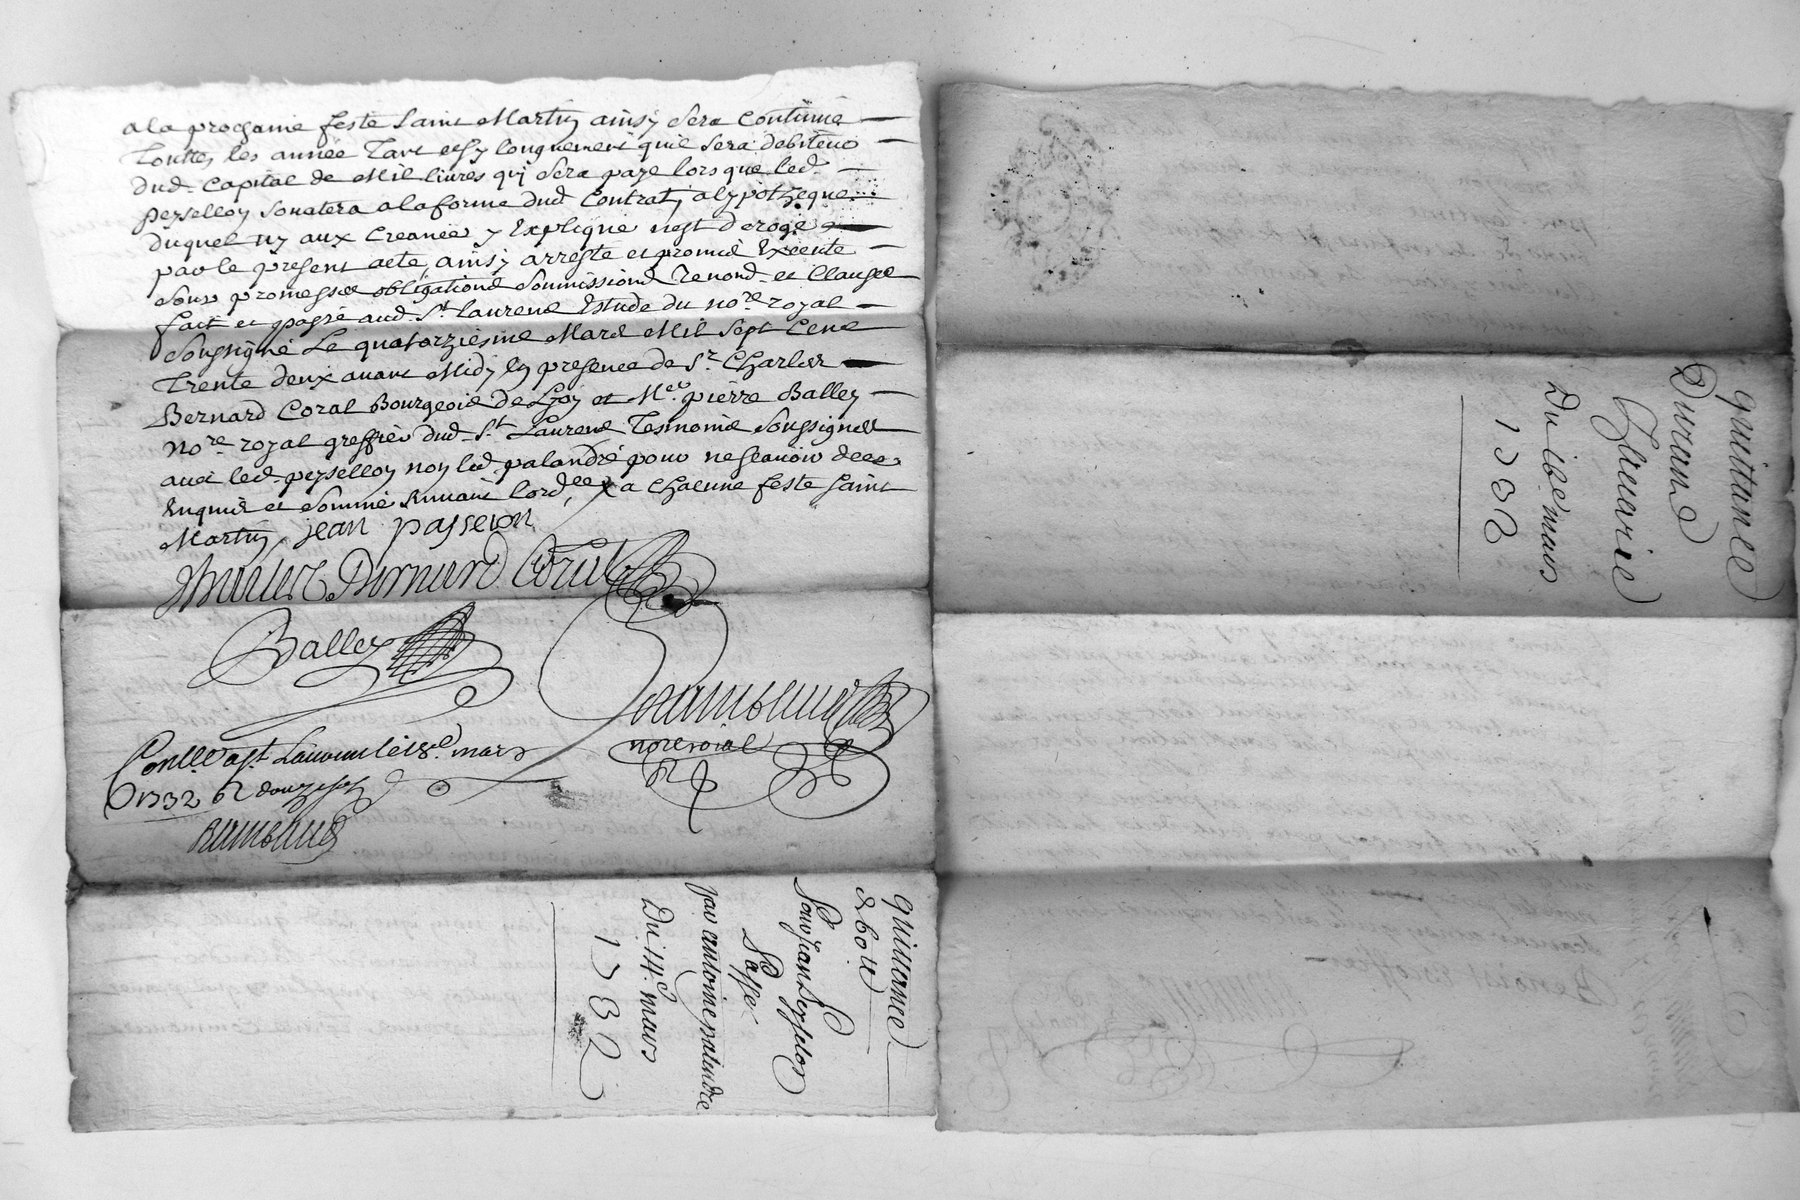 a la prochaine feste Saint Martin ainsy Sera Continué
Touttes les année Tant et sy longuement quil Sera debiteur
dud. Capital de Mil livres qui Sera payé lors que led.
peyselloy Souatera a la forme dud Contrat, a lypotheque
duquel ny aux Creances y Expliqué nest derogé
par le present acte, ainsy arresté et promis Executé
Sous promesses obligations Soumissions Renond. et Clauses
fait et passé aud. St. laurent Estude du nore. royal
Soussigné Le quatorziesme Mars Mil Sept Cent
Trente deux avant Midy En presence de Sr. Charles
Bernard Coral Bourgeois de Lyon et Me. pierre Balley
Nore. royal greffier dud. St. Laurent Tesmoins Soussignés
avec led. peyselloy non led. palandré pour ne scavoir de ce
Enquis et Sommé Suivant lordce. x a Chacune feste Saint
Martin, jean passeron
Charles Bernard Coral
Balley
nore roial
Conllé a St. Laurent le 18e. mars
1732 R douze sols
quittance
de 60 ll
Pour Jean Peyselon
Passé
par antoine palandre
Du 14e. mars
1732
quittance
Durand
Thevarie
Du 16e mars
1732